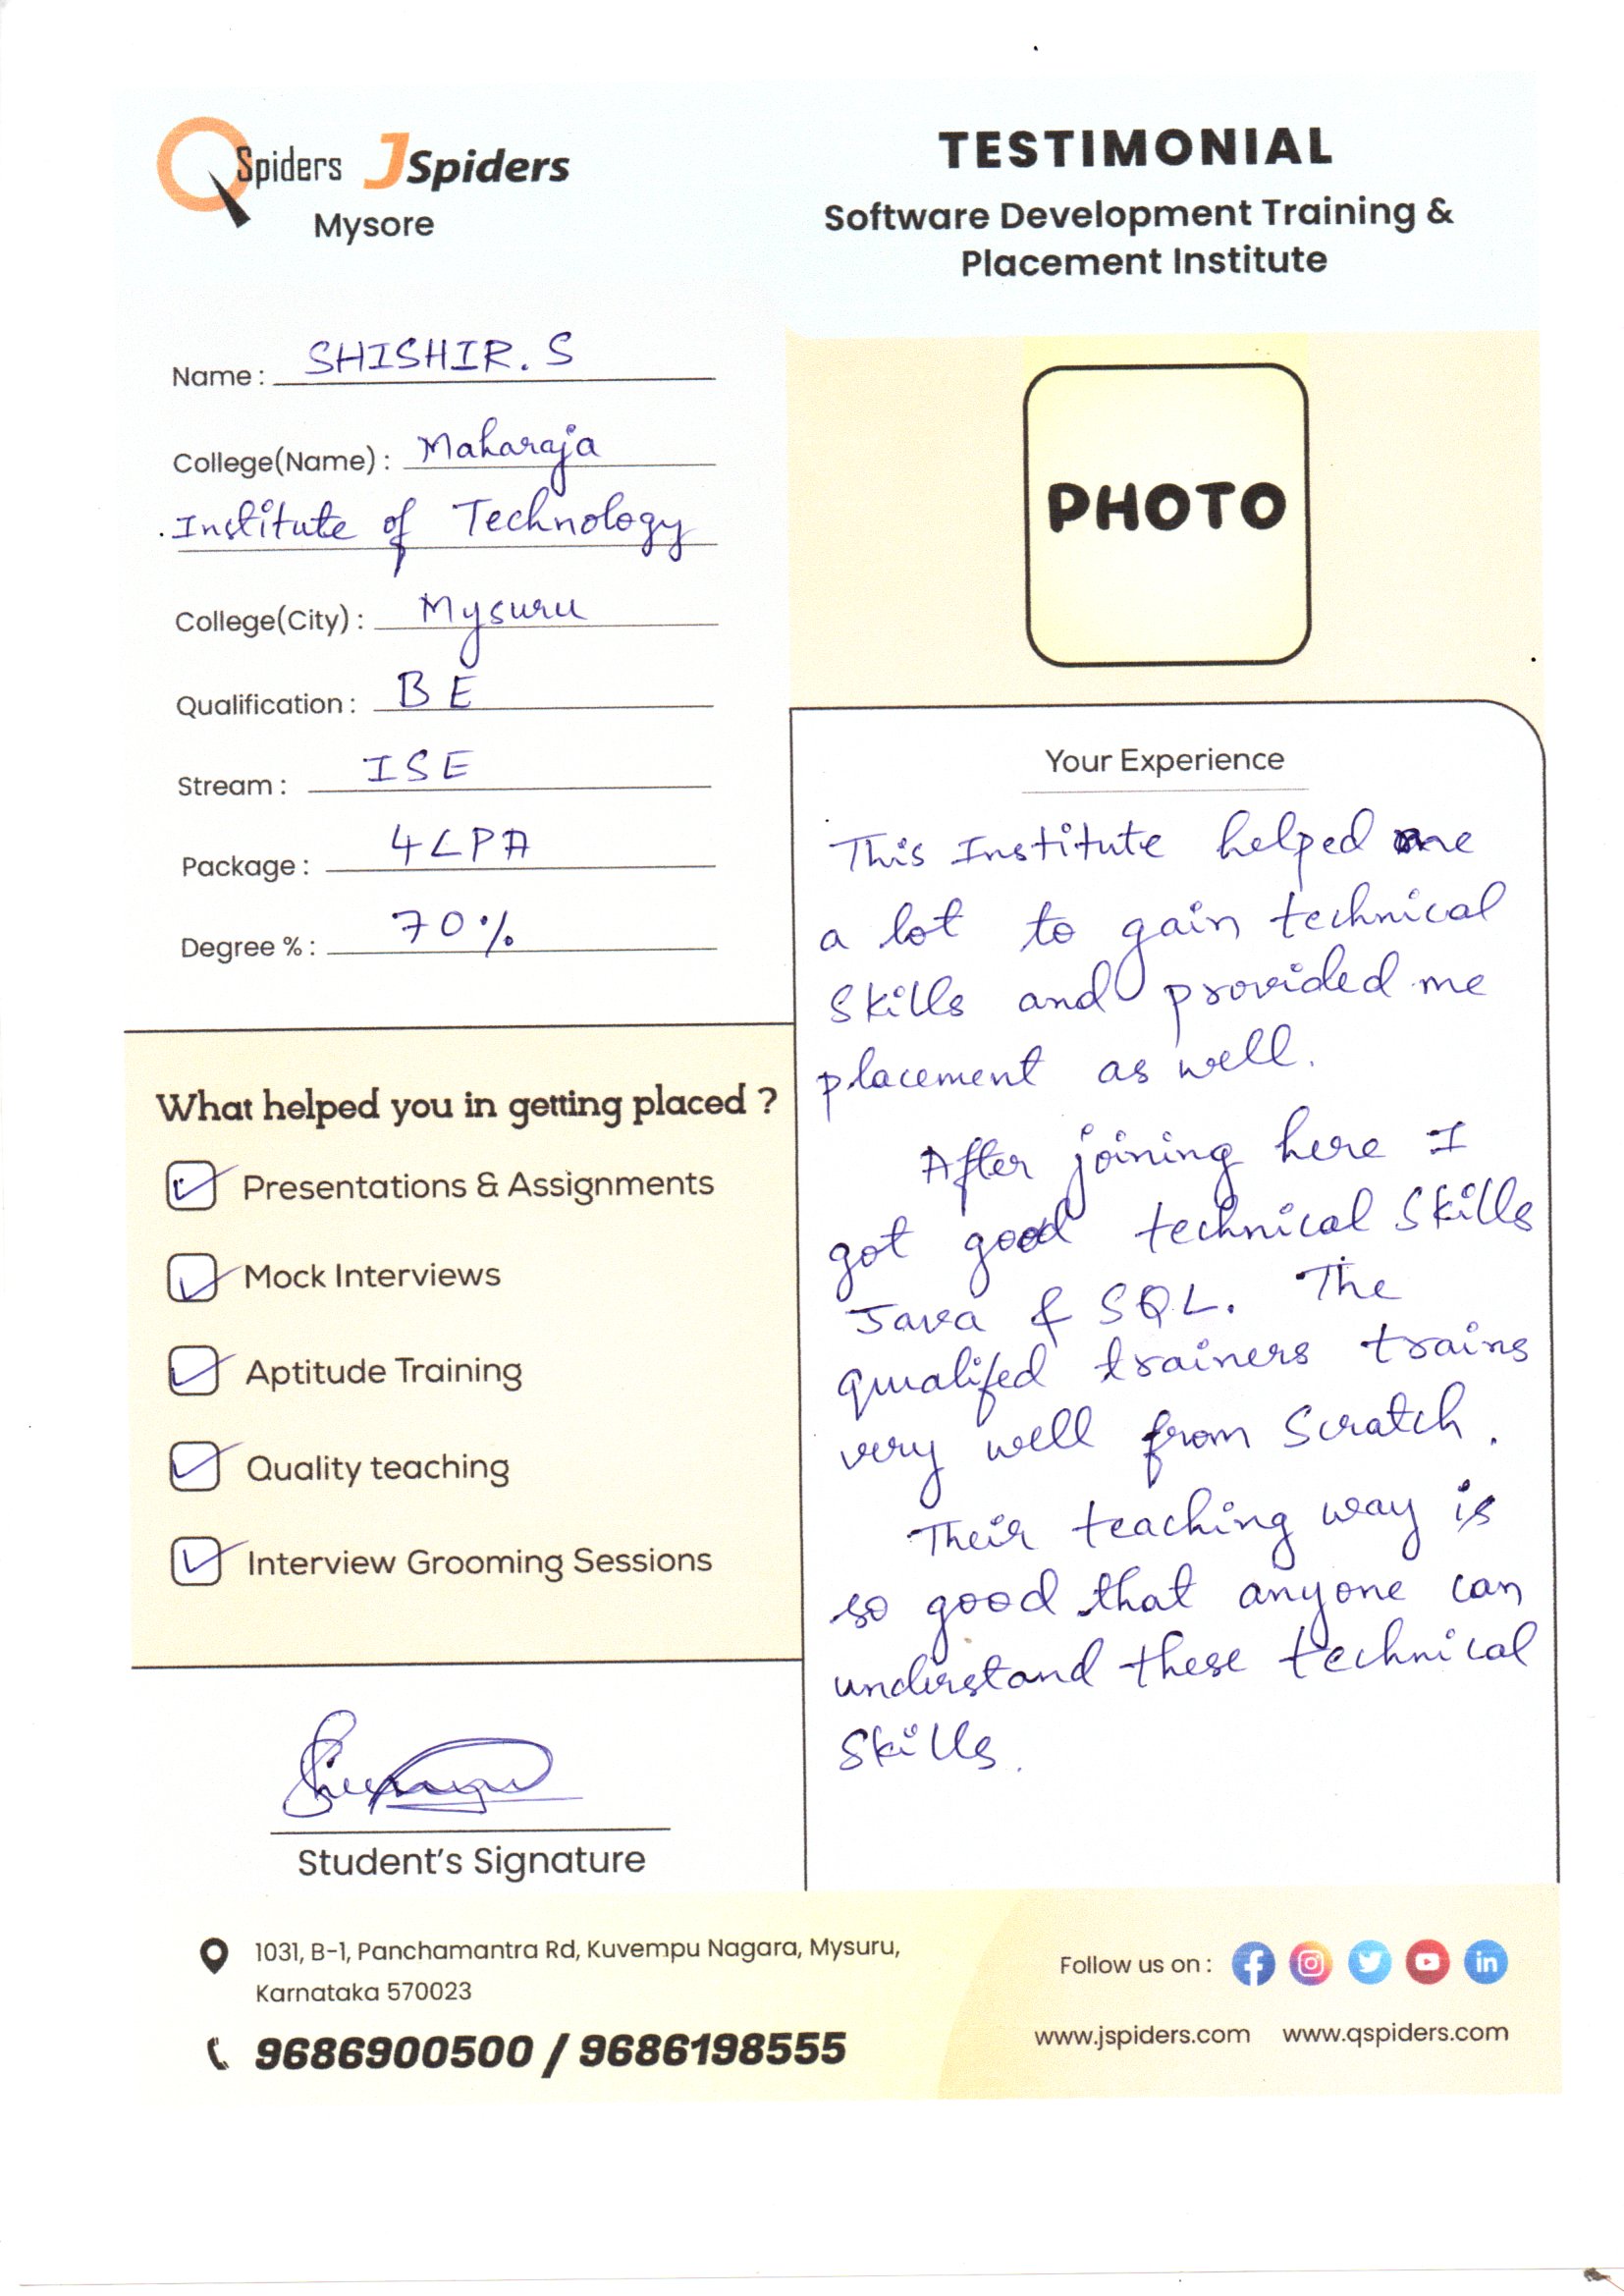 QSpiders JSpiders
Mysore
TESTIMONIAL
Software Development Training &
Placement Institute
Name : SHISHIR. S
College(Name) : Maharaja
Institute of Technology
College(City) : Mysuru
Qualification : B E
Stream : ISE
Package : 4LPA
Degree % : 70%
PHOTO
What helped you in getting placed ?
Presentations & Assignments
Mock Interviews
Aptitude Training
Quality teaching
Interview Grooming Sessions
Student's Signature
Your Experience
This Institute helped me
a lot to gain technical
skills and provided me
placement as well.
After joining here I
got good technical skills
Java & SQL. The
qualifed trainers trains
very well from Scratch.
Their teaching way is
so good that anyone can
understand these technical
skills.
1031, B-1, Panchamantra Rd, Kuvempu Nagara, Mysuru,
Karnataka 570023
9686900500 / 9686198555
Follow us on :
www.jspiders.com www.qspiders.com